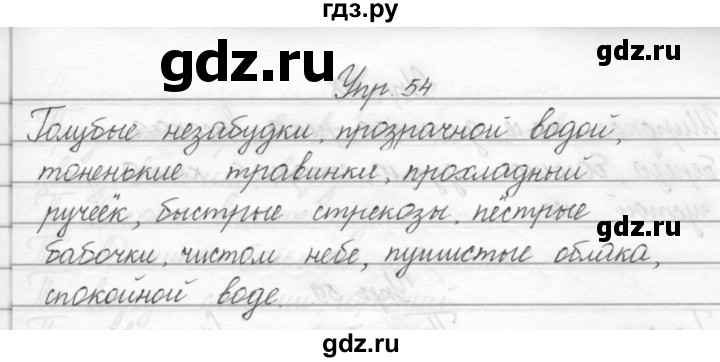 гдз.ру
gdz.ru
gdz.ru
Упр. 54
Голубые незабудки, прозрачной водой,
тоненькие травинки, прохладный
ручеёк, быстрые стрекозы, пёстрые
gdz.ru
бабочки, чистом небе, пушистые облака,
спокойной воде.
gdz.ru